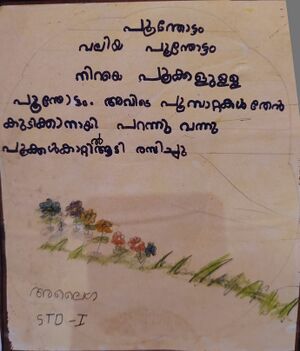 പൂന്തോട്ടം
വലിയ പൂന്തോട്ടം
നിറയെ പൂക്കളുള്ള
പൂന്തോട്ടം. അവിടെ പൂമ്പാറ്റകൾ തേൻ
കുടിക്കാനായി പറന്നു വന്നു
പൂക്കൾ കാറ്റിൽ ആടി രസിച്ചു
STD-I